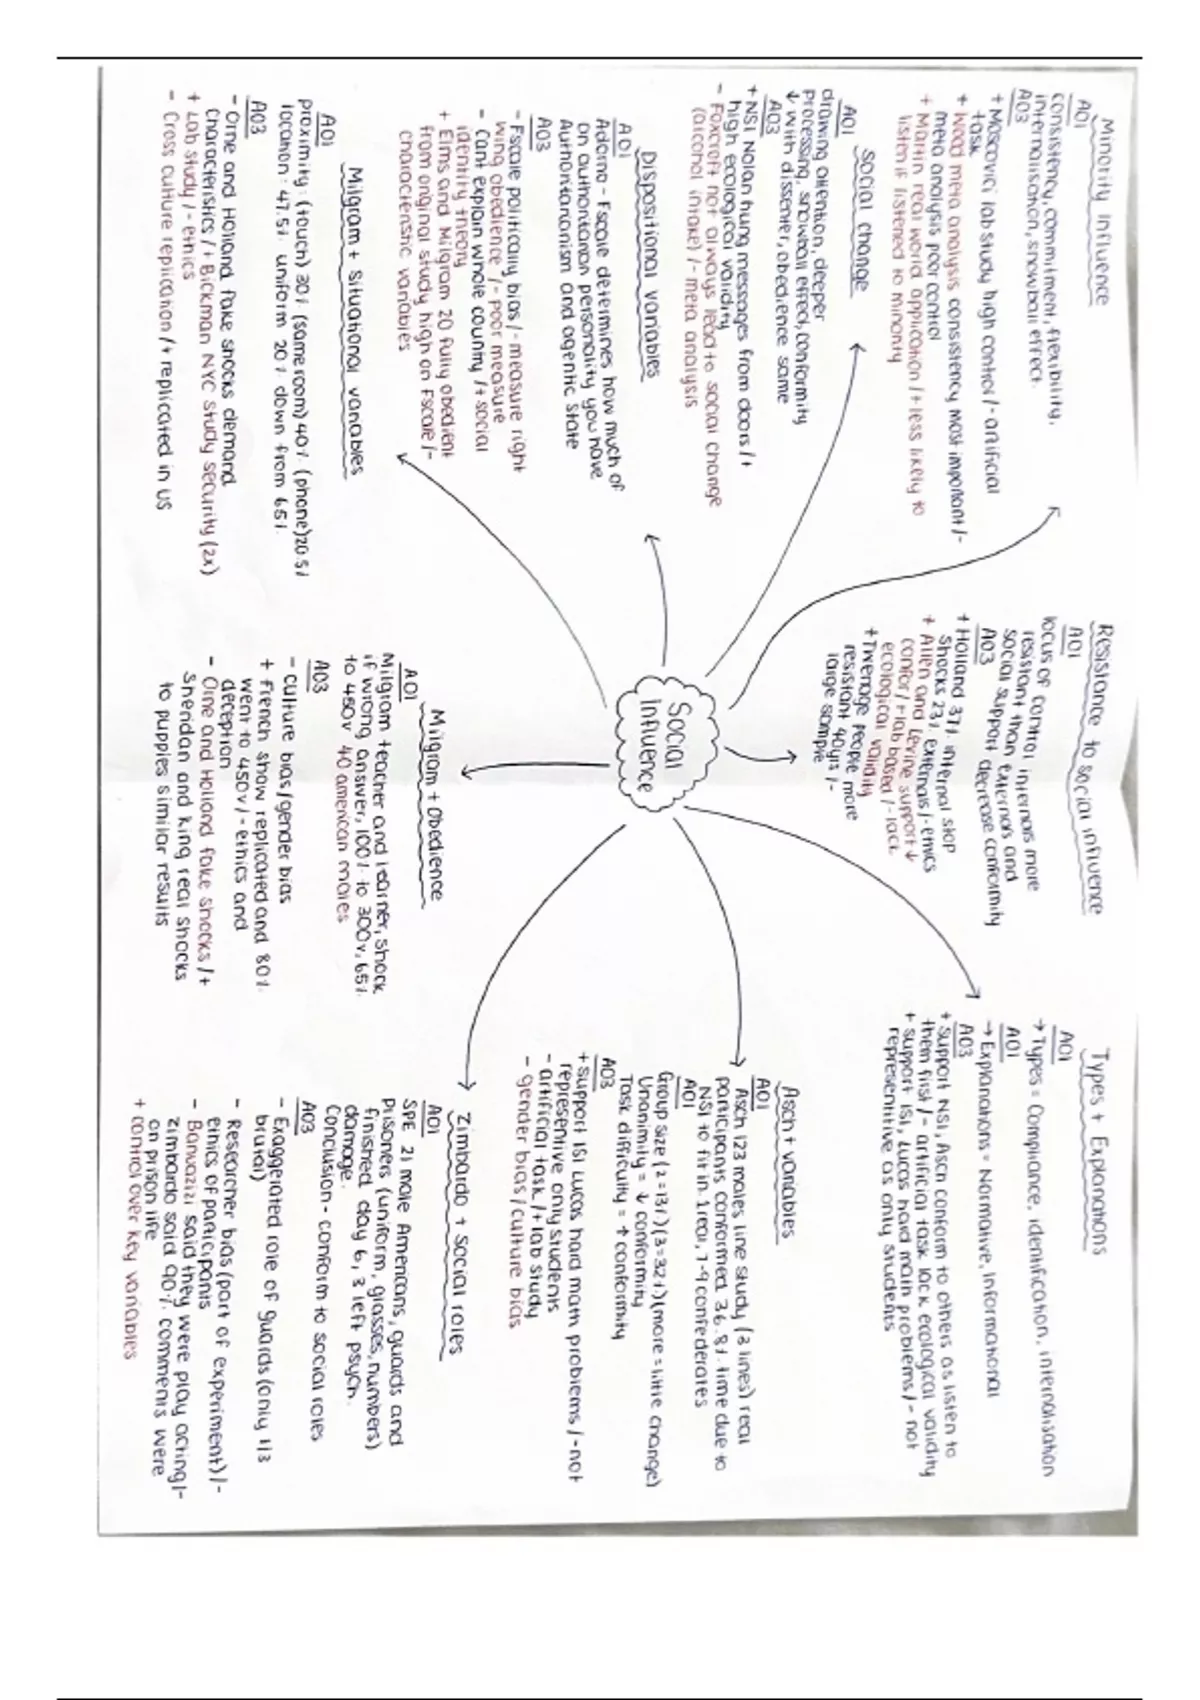 Social
Influence
Minority Influence
AO1
consistency, commitment, flexibility,
internalisation, snowball effect.
AO3
+ Moscovici lab study high control /- artificial
task
+ Wood meta analysis consistency most important /-
meta analysis poor control
+ Martin real world application /+ less likely to
listen if listened to minority
Social change
AO1
drawing attention, deeper
processing, snowball effect, conformity
↓ with dissenter, obedience same
AO3
+ NSI Nolan hung messages from doors /+
high ecological validity
- Foxcroft not always lead to social change
(alcohol intake) /- meta analysis
Dispositional variables
AO1
Adorno - Fscale determines how much of
an authoritarian personality you have
Authoritarianism and agentic state
AO3
- Fscale politically bias /- measure right
wing obedience /- poor measure
- Cant explain whole country /+ social
identity theory
+ Elms and Milgram 20 fully obedient
from original study high on Fscale /-
characteristic variables
Milgram + Situational variables
AO1
proximity: (touch) 30% (same room) 40% (phone) 20.5%
location: 47.5% uniform 20% down from 65%
AO3
- Orne and Holland fake shocks demand
characteristics /+ Bickman NYC study security (2x)
+ Lab study /- ethics
- Cross culture replication /+ replicated in US
Resistance to social influence
AO1
locus of control internals more
resistant than externals and
social support decrease conformity
AO3
+ Holland 37% internal stop
shocks 23% externals /- ethics
+ Allen and Levine support ↓
confor /+ lab based /- lack
ecological validity
+ Twenage people more
resistant 40yrs /-
large sample
Milgram + Obedience
AO1
Milgram teacher and learner, shock
if wrong answer, 100% to 300v, 65%
to 450v 40 american males
AO3
- culture bias / gender bias
+ French show replicated and 80%
went to 450v /- ethics and
deception
- Orne and Holland fake shocks /+
Sheridan and King real shocks
to puppies similar results
Types + Explanations
AO1
→ Types = Compliance, identification, internalisation
AO1
→ Explanations = Normative, informational
AO3
+ Support NSI, Asch conform to others as listen to
them first /- artificial task lack ecological validity
+ support ISI, Lucas hard math problems /- not
representitive as only students
Asch + variables
AO1
Asch 123 males line study (3 lines) real
participants conformed 36.8% time due to
NSI to fit in. 1 real, 7-9 confederates
AO1
Group size (2=13%) (3=32%) (more = little change)
Unanimity = ↓ conformity
Task difficulty = ↑ conformity
AO3
+ support ISI Lucas hard math problems /- not
representive only students
- artificial task /+ lab study
- gender bias / culture bias
Zimbardo + Social roles
AO1
SPE 21 male Americans, guards and
prisoners (uniform, glasses, numbers)
finished day 6, 3 left psych.
damage.
Conclusion - conform to social roles
AO3
- Exaggerated role of guards (only 1/3
brutal)
- Researcher bias (part of experiment) /-
ethics of participants
- Banuazizi said they were play acting /-
Zimbardo said 90% comments were
on prison life
+ control over key variables